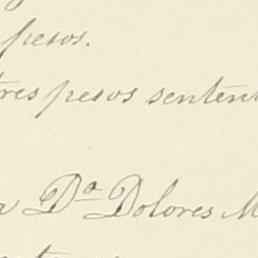 pesos.
tres pesos sentent
a Dª Dolores M